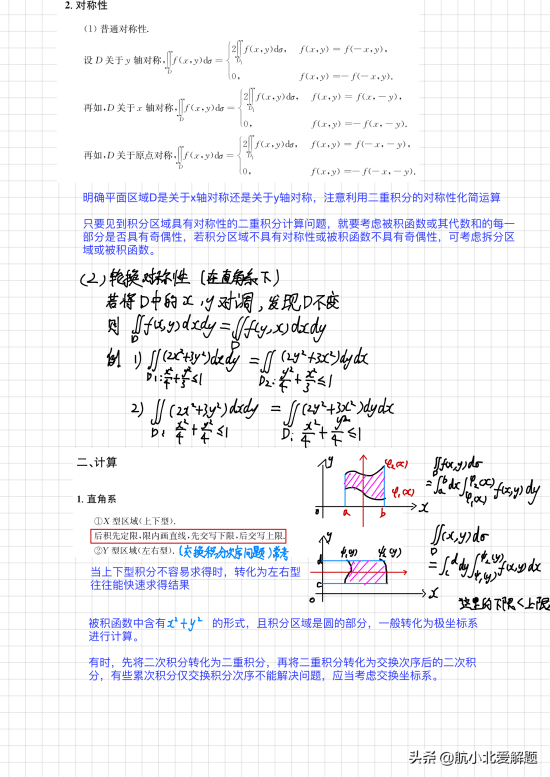 2. 对称性
(1) 普通对称性.
设 D 关于 y 轴对称,∬_D f(x,y)dσ = { 2∬_{D₁} f(x,y)dσ, f(x,y) = f(-x,y),
0, f(x,y) = -f(-x,y).
再如,D 关于 x 轴对称,∬_D f(x,y)dσ = { 2∬_{D₁} f(x,y)dσ, f(x,y) = f(x,-y),
0, f(x,y) = -f(x,-y).
再如,D 关于原点对称,∬_D f(x,y)dσ = { 2∬_{D₁} f(x,y)dσ, f(x,y) = f(-x,-y),
0, f(x,y) = -f(-x,-y).
明确平面区域D是关于x轴对称还是关于y轴对称，注意利用二重积分的对称性化简运算
只要见到积分区域具有对称性的二重积分计算问题，就要考虑被积函数或其代数和的每一
部分是否具有奇偶性，若积分区域不具有对称性或被积函数不具有奇偶性，可考虑拆分区
域或被积函数。
(2) 轮换对称性 (在直角系下)
若将D中的 x,y对调, 发现D不变
则 ∬_D f(x,y)dxdy = ∬_D f(y,x)dxdy
例 1) ∬ (2x²+3y²)dxdy = ∬ (2y²+3x²)dydx
D₁: x²/4 + y²/3 ≤1 D₂: y²/4 + x²/3 ≤1
2) ∬ (2x²+3y²)dxdy = ∬ (2y²+3x²)dydx
D: x²/4 + y²/4 ≤1 D: x²/4 + y²/4 ≤1
二、计算
1. 直角系
①X 型区域(上下型).
后积先定限,限内画直线,先交写下限,后交写上限.
②Y 型区域(左右型). (交换积分次序问题)常考
当上下型积分不容易求得时，转化为左右型
往往能快速求得结果
y
φ₂(x)
φ₁(x)
0 a b x
∬_D f(x,y)dσ
= ∫_a^b dx ∫_{φ₁(x)}^{φ₂(x)} f(x,y) dy
y
d ψ₁(y) ψ₂(y)
c
0 x
∬_D (x,y)dσ
= ∫_c^d dy ∫_{ψ₁(y)}^{ψ₂(y)} f(x,y)dx
这里的下限<上限
被积函数中含有 x²+y² 的形式，且积分区域是圆的部分，一般转化为极坐标系
进行计算。
有时，先将二次积分转化为二重积分，再将二重积分转化为交换次序后的二次积
分，有些累次积分仅交换积分次序不能解决问题，应当考虑交换坐标系。
头条 @航小北爱解题